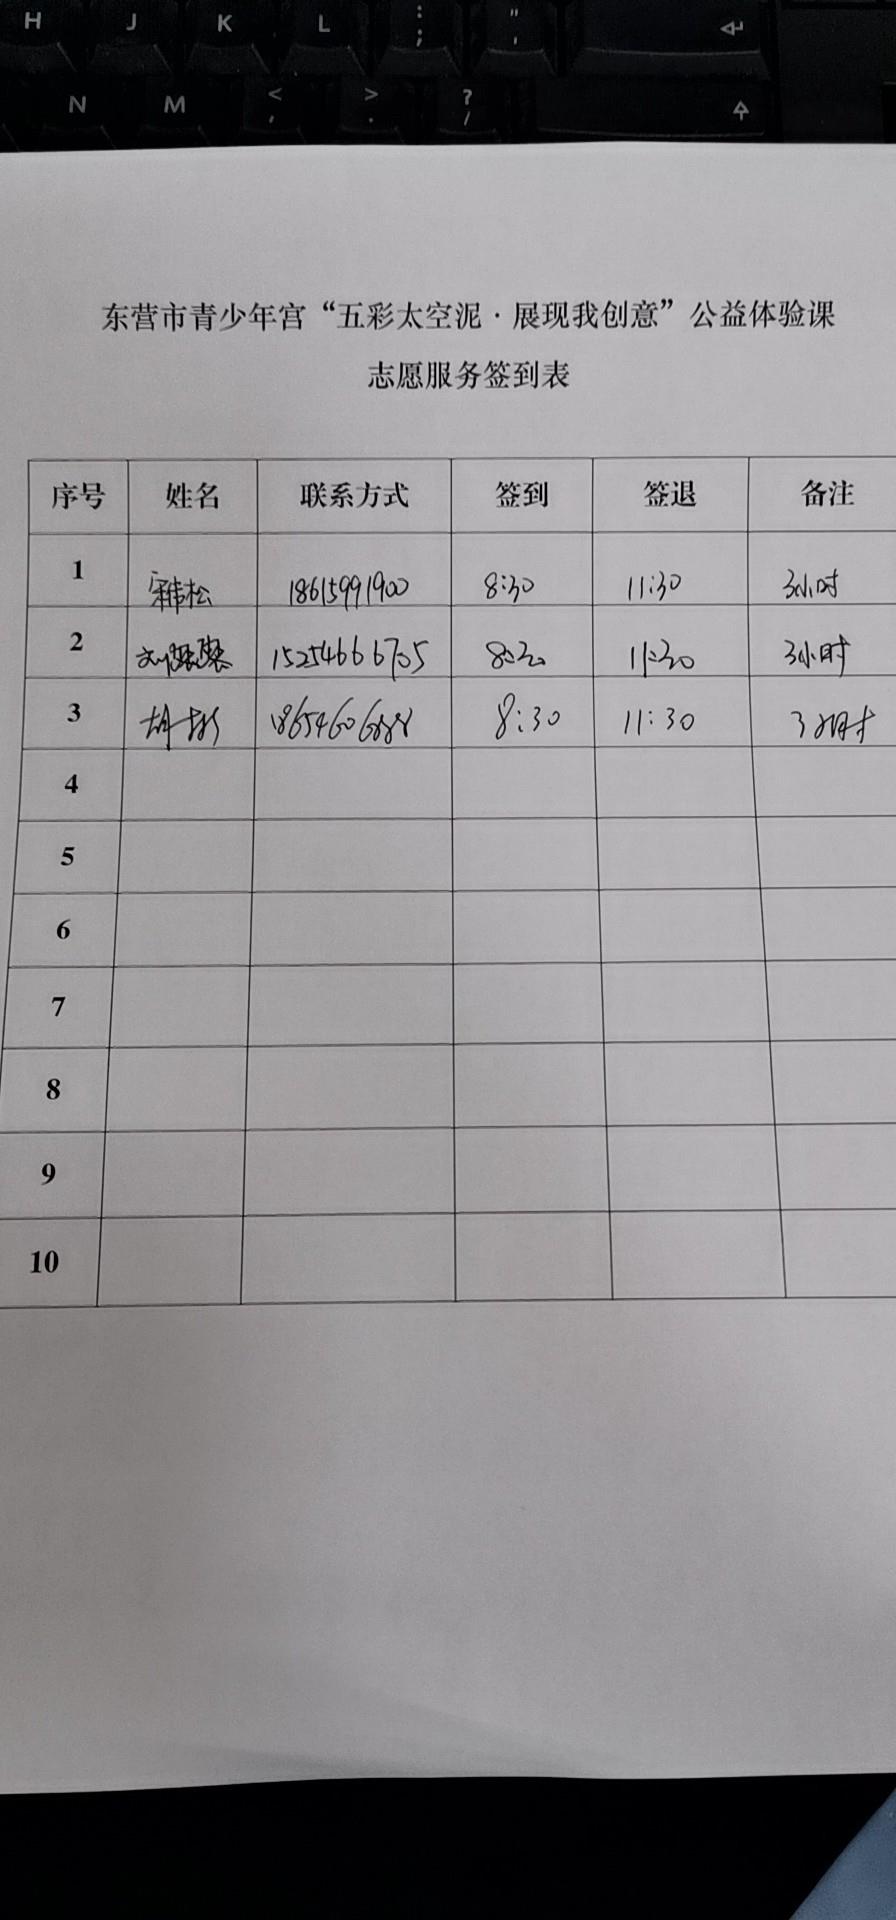 H J K L : ; " '
N M < , > . ? /
东营市青少年宫“五彩太空泥·展现我创意”公益体验课
志愿服务签到表
序号 姓名 联系方式 签到 签退 备注
1 18615991900 8:30 11:30 3小时
2 15254666705 8:30 11:30 3小时
3 18654606888 8:30 11:30 3小时
4
5
6
7
8
9
10